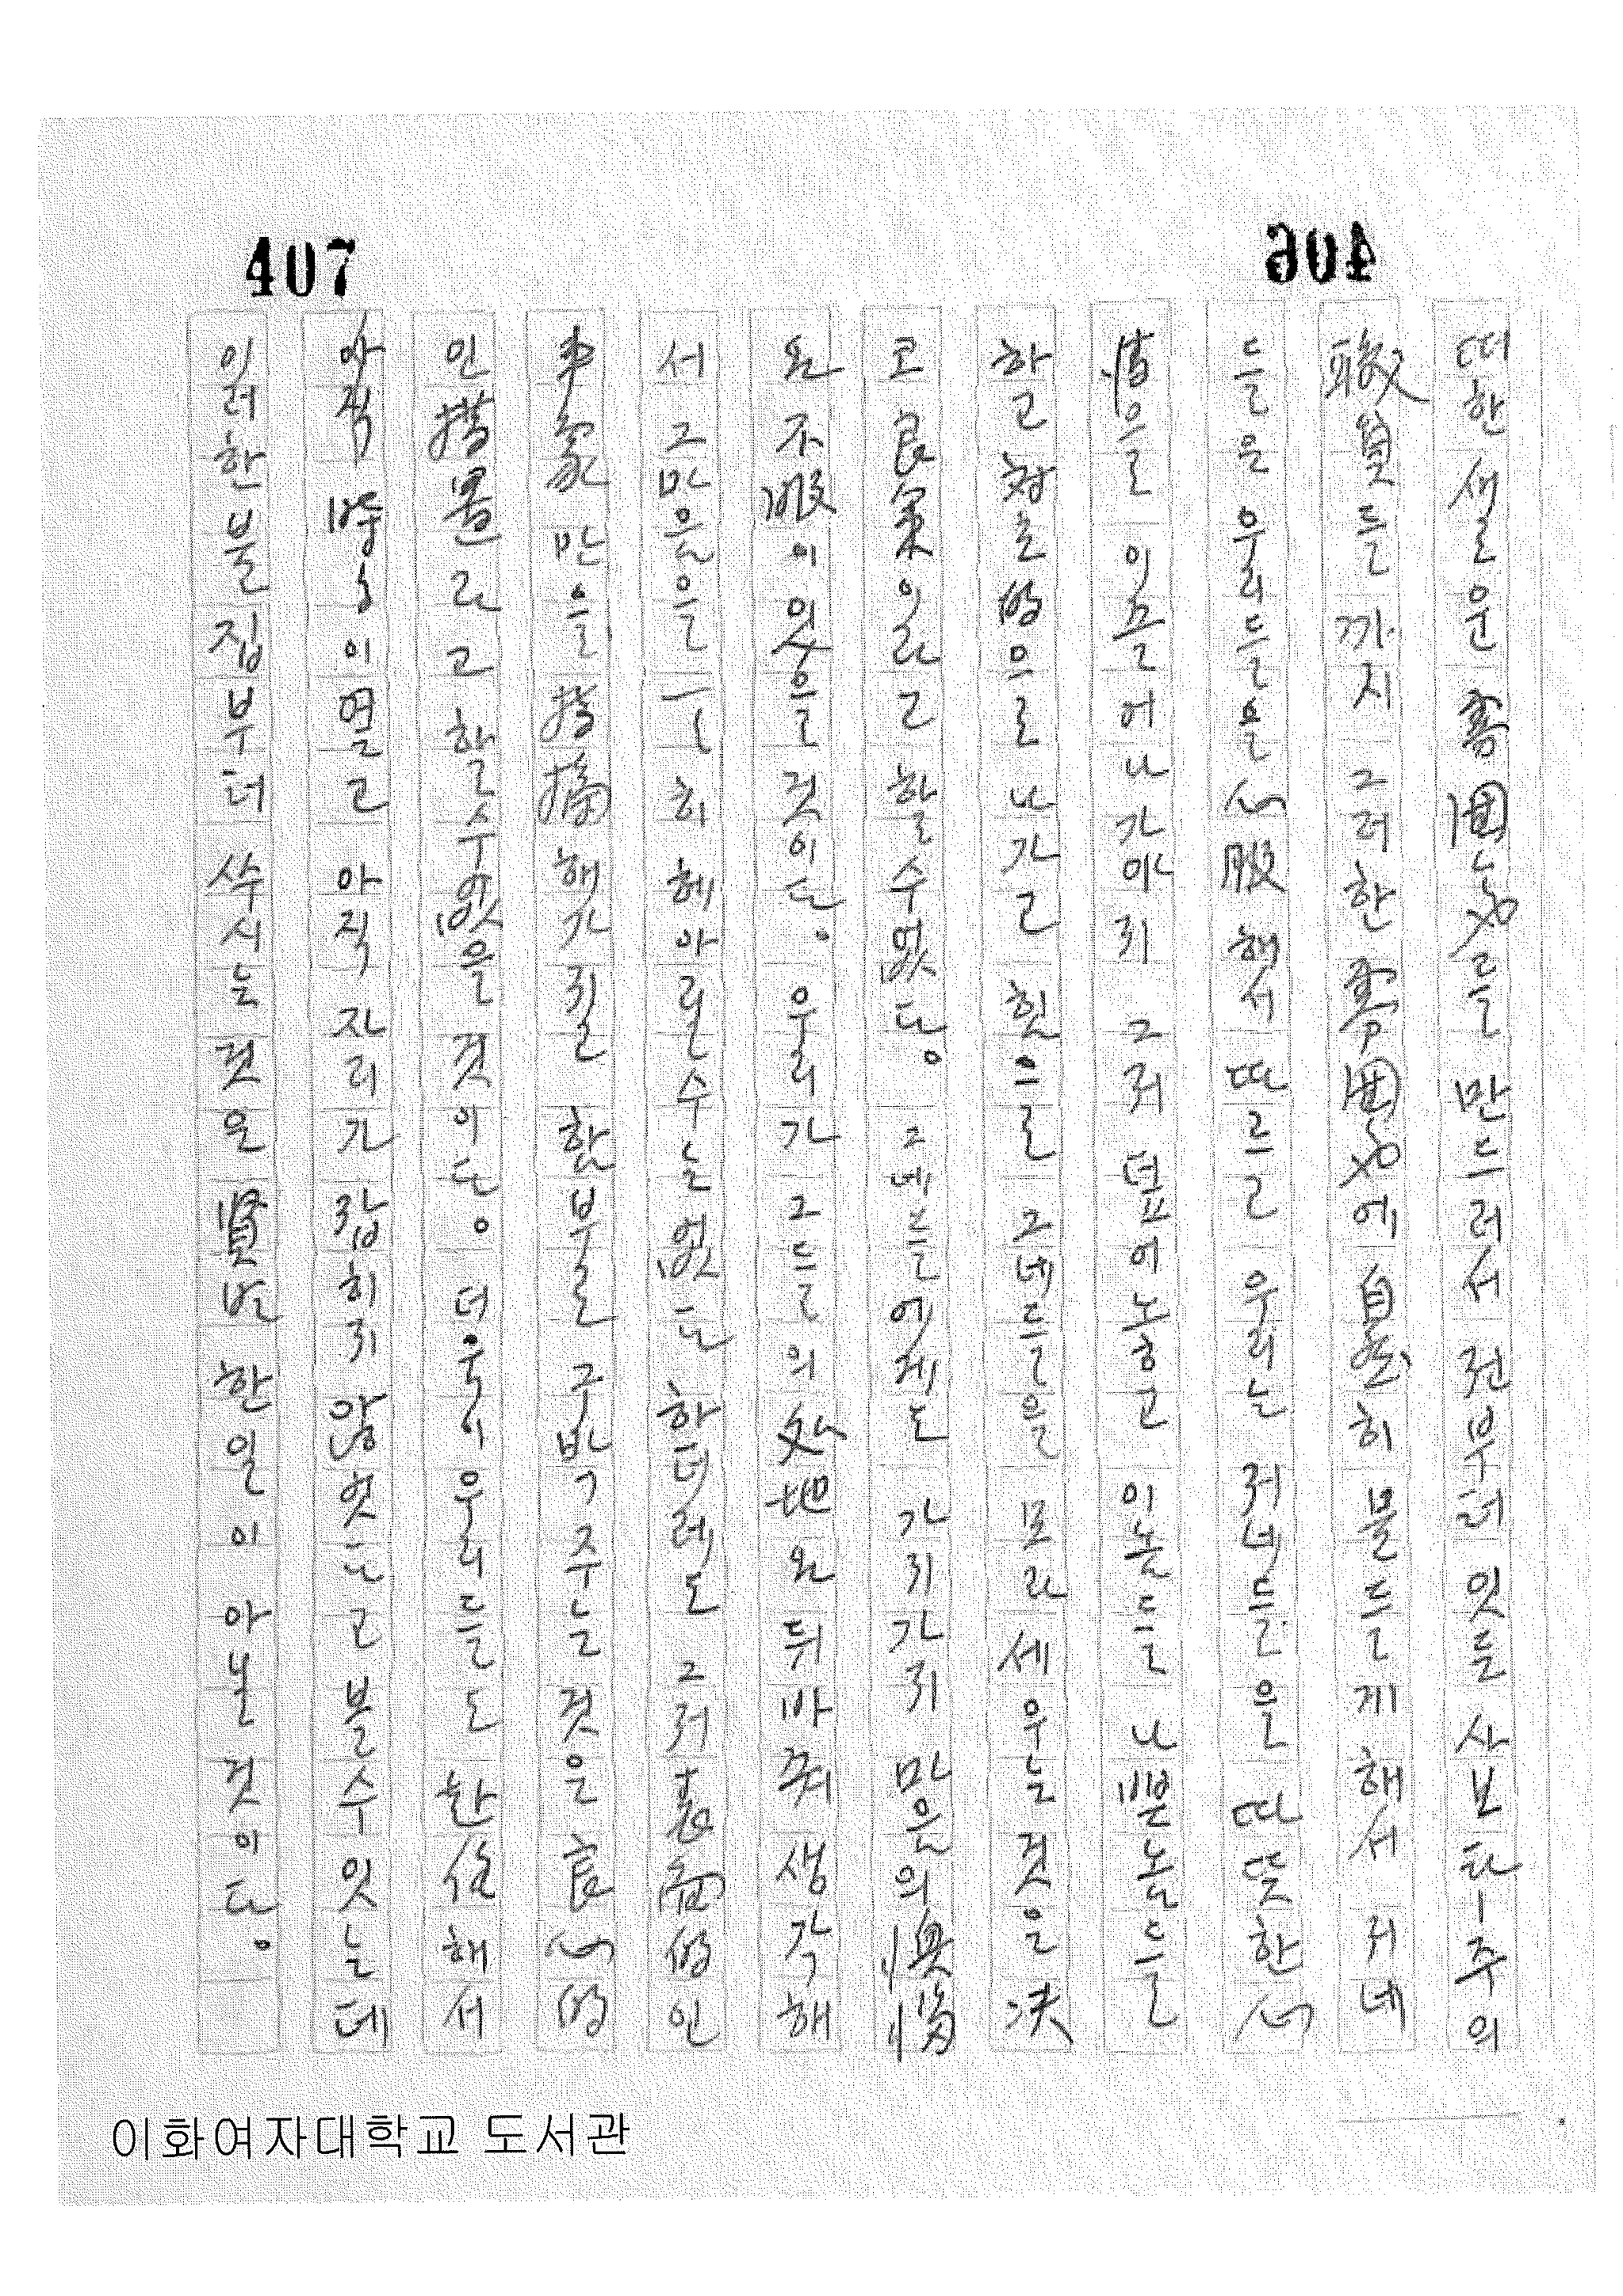 407
406
떠한 새로운 雰圍氣를 만드러서 전부터 잇든 사보타-주의
職員들까지 그러한 雰圍氣에 自然히 물들게 해서 저네
들은 우리들을 心服해서 따르고 우리는 저네들을 따뜻한 心
情으로 이끌어나가야지 그저 덮어노코 이놈들 나쁜놈들
하고 對立的으로 나가고 힛으로 그네들을 모라세우는 것은 決
코 良策이라고 할수 없다. 그네들에게도 가지가지 만은 의 懊惱
와 不服이 있을 것이다. 우리가 그들의 處地와 뒤바꿔 생각해
서 그만은을 一一히 헤아릴수는 없다 하더래도 그저 表面的인
事象만을 指摘해가질 함부로 구박주는 것은 良心的
인 措置라고 할수 없을 것이다. 더욱이 우리들도 赴任해서
아직 時日이 옅고 아직 자리가 잡히지 않엇다고 볼수 잇는데
이러한 불집부터 쑤시는 것은 賢明한 일이 아닐 것이다.
이화여자대학교 도서관